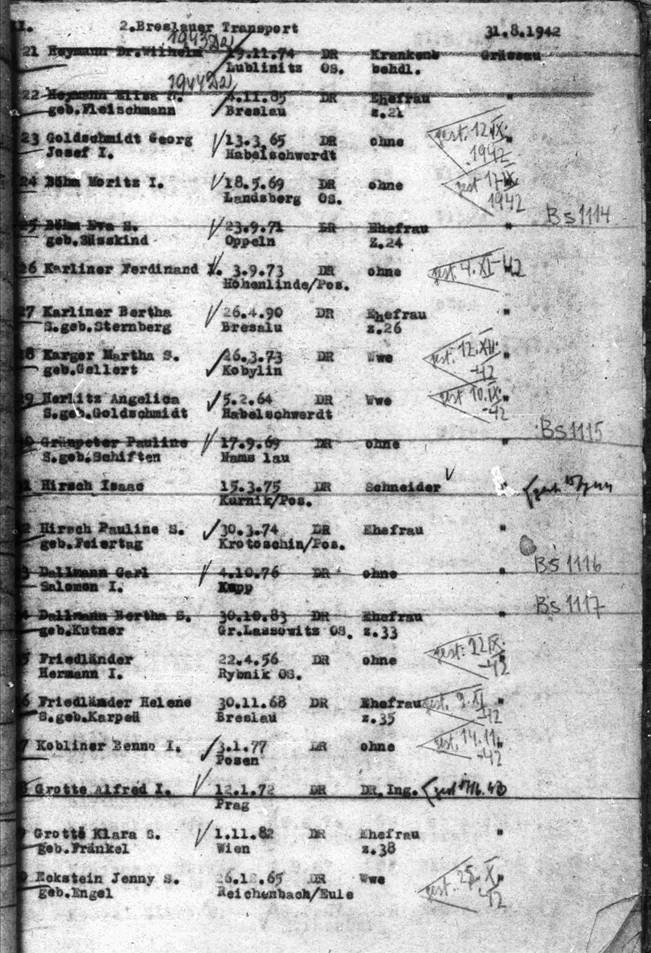 I. 2.Breslauer Transport 31.8.1942
1943 D2)
21 Heymann Dr.Wilhelm 19.11.74 DR Krankenb Grüssau
Lublinitz OS. behdl.
1944 D2)
22 Heymann Elisa S. 4.11.85 DR Ehefrau "
geb.Fleischmann Breslau z.21
23 Goldschmidt Georg 13.3.65 DR ohne gest. 12.IX. "
Josef I. Habelschwerdt 1942
24 Böhm Moritz I. 18.5.69 DR ohne gest 17.IX "
Landsberg OS. 1942
Bs1114
25 Böhm Eva S. 23.9.71 DR Ehefrau "
geb.Süsskind Oppeln Z.24
26 Karliner Ferdinand I. 3.9.73 DR ohne gest 4.XI-42 "
Hohenlinde/Pos.
27 Karliner Bertha 26.4.90 DR Ehefrau "
S.geb.Sternberg Bresalu z.26
8 Karger Martha S. 26.3.73 DR Wwe gest. 12.XII. "
geb.Gellert Kobylin -42
29 Herlitz Angelica 5.2.64 DR Wwe gest 10.IX. "
S.geb.Goldschmidt Habelschwerdt -42
Bs1115
0 Grünpeter Pauline 17.9.69 DR ohne "
S.geb.Schiften Nams lau
1 Hirsch Isaac 15.3.75 DR Schneider "
Kurnik/Pos.
2 Hirsch Pauline S. 30.3.74 DR Ehefrau "
geb.Feiertag Krotoschin/Pos.
Bs1116
3 Dallmann Carl 4.10.76 DR ohne "
Salomon I. Kupp
Bs1117
4 Dallmann Bertha S. 30.10.83 DR Ehefrau "
geb.Kutner Gr.Lassowitz OS. z.33
5 Friedländer 22.4.56 DR ohne gest. 22.IX. "
Hermann I. Rybnik OS. -42
6 Friedländer Helene 30.11.68 DR Ehefrau gest. 9.XI "
S.geb.Karpen Breslau z.35 -42
7 Kobliner Benno I. 3.1.77 DR ohne gest. 14.11. "
Posen -42
8 Grotte Alfred I. 12.1.72 DR DR.Ing. "
Prag
9 Grotte Klara S. 1.11.82 DR Ehefrau "
geb.Fränkel Wien z.38
Eckstein Jenny S. 65 DR Wwe gest. 25.X. "
geb.Engel Reichenbach/Eule -42